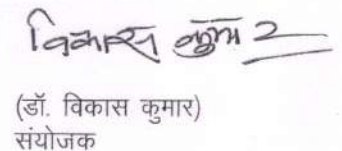 विकास कुमार
(डॉ. विकास कुमार)
संयोजक